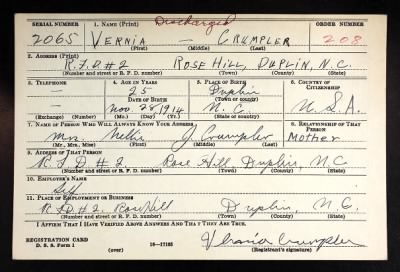 Discharged
SERIAL NUMBER 1. NAME (Print) ORDER NUMBER
2065 VERNIA — CRUMPLER 208
(First) (Middle) (Last)
2. ADDRESS (Print)
R.F.D #2 ROSE HILL, DUPLIN, N.C.
(Number and street or R. F. D. number) (Town) (County) (State)
3. TELEPHONE 4. AGE IN YEARS 5. PLACE OF BIRTH 6. COUNTRY OF CITIZENSHIP
— 25 Duplin
DATE OF BIRTH (Town or county)
— Nov. 25 1914 N.C. U.S.A.
(Exchange) (Number) (Mo.) (Day) (Yr.) (State or country)
7. NAME OF PERSON WHO WILL ALWAYS KNOW YOUR ADDRESS 8. RELATIONSHIP OF THAT PERSON
Mrs. Nettie J Crumpler Mother
(Mr., Mrs., Miss) (First) (Middle) (Last)
9. ADDRESS OF THAT PERSON
R.F.D #2 Rose Hill Duplin, N.C
(Number and street or R. F. D. number) (Town) (County) (State)
10. EMPLOYER'S NAME
Self
11. PLACE OF EMPLOYMENT OR BUSINESS
R.F.D. #2. Rose Hill Duplin, N.C.
(Number and street or R. F. D. number) (Town) (County) (State)
I AFFIRM THAT I HAVE VERIFIED ABOVE ANSWERS AND THAT THEY ARE TRUE.
REGISTRATION CARD
D. S. S. Form 1 (over) 16—17105 Vernia Crumpler
(Registrant's signature)